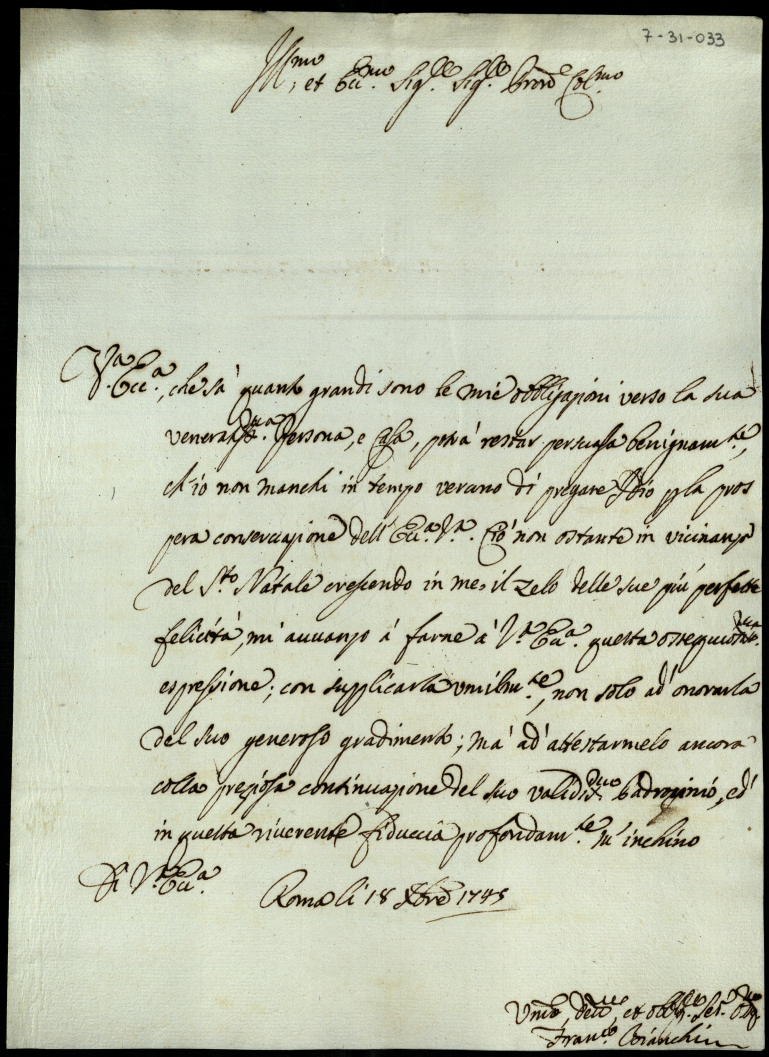 7-31-033
Ill.mo, et Ecc.mo Sig.re Sig.re Prone Col.mo
V.a Ecc.a, che sà quanto grandi sono le mie obbligazioni verso la sua
veneratis.ma Persona, e Casa, potrà restar persuasa benignam.te,
ch'io non manchi in tempo veruno di pregare Iddio p la pros
pera conservazione dell'Ecc.a V.a. Ciò non ostante in vicinanza
del S.to Natale crescendo in me, il zelo delle sue più perfette
felicità, mi avvanzo à farne à V.a Ecc.a questa ossequios.ma
espressione; con supplicarla vmilm.te, non solo ad'onorarla
del suo generoso gradimento; mà ad'attestarmelo ancora
colla preziosa continuazione del suo validis.mo Padrozinio, ed'
in questa riverente fiducia profondam.te m'inchino
Di V.a Ecc.a
Roma li 18 Xbre 1745
Vmo, deuo, et obblig. Ser.
Fran.co Bianchini